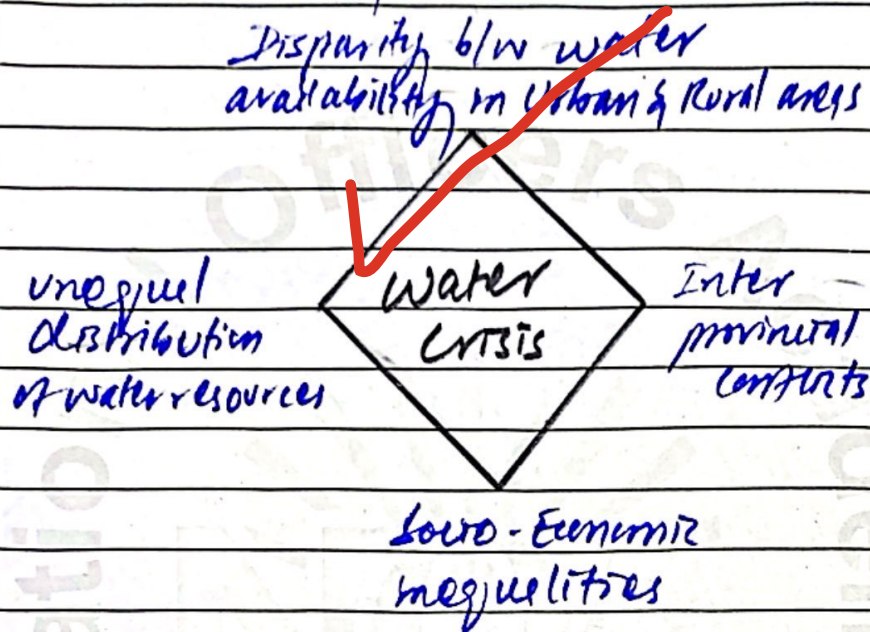 Disparity b/w water
availability in Urban & Rural areas
unequal
distribution
of water resources
Water
Crisis
Inter
provincial
conflicts
Socio-Economic
inequalities